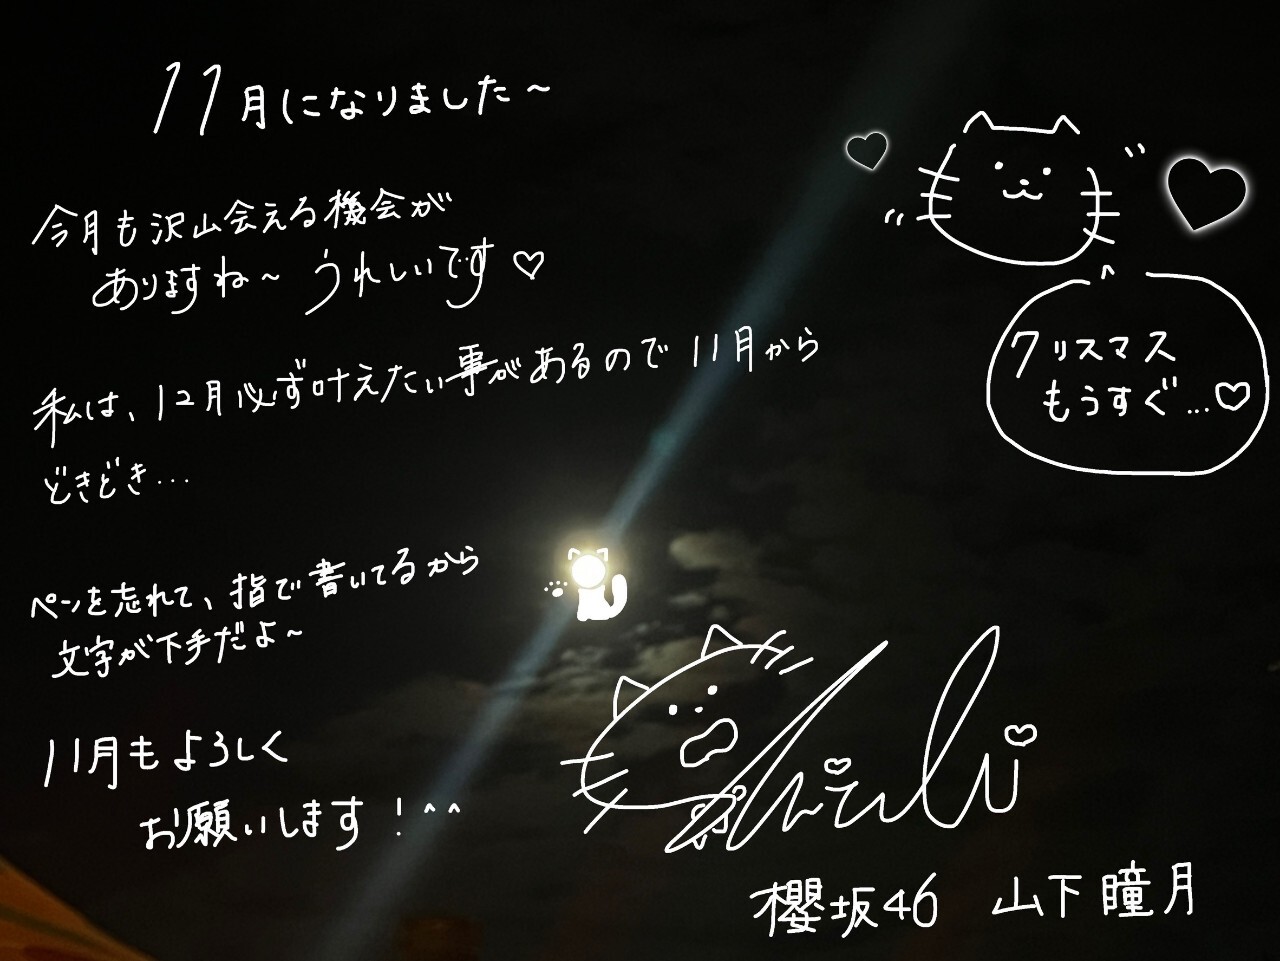 11月になりました~
今月も沢山会える機会が
ありますね~ うれしいです♡
私は、12月必ず叶えたい事があるので11月から
どきどき...
ペンを忘れて、指で書いてるから
文字が下手だよ~
11月もよろしく
お願いします!^^
クリスマス
もうすぐ...♡
櫻坂46 山下瞳月